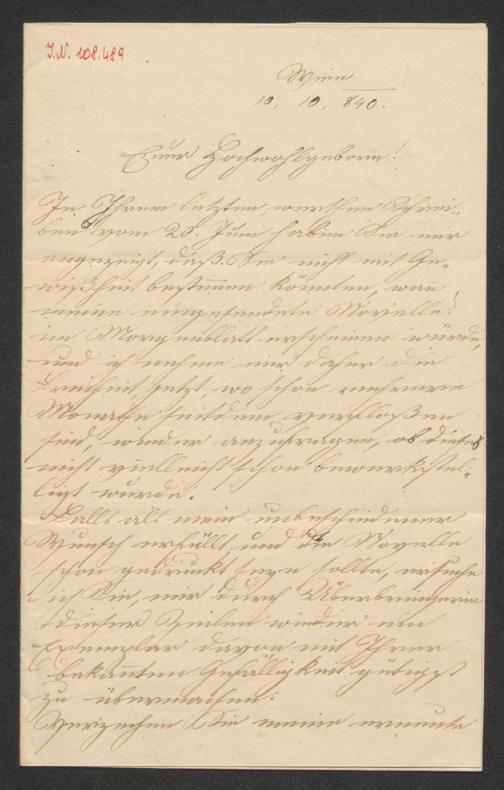 I.N. 108.489
Wien
10. 10. 840.
Euer Hochwohlgeboren!
In Ihrem letzten, werthen Schrei-
ben vom 20. Juni haben Sie mir
angezeigt, daß Sie nicht mit Ge-
wißheit bestimen könnten, wan
meine eingesendete Novelle
im Morgenblatt erscheinen würde,
und ich nehme mir daher die
Freiheit, jetzt, wo schon mehrere
Monathe seitdem verfloßen
sind, wieder anzufragen, ob dieses
nicht vielleicht schon bewerkstel-
ligt wurde.
Falls als mein unbescheidener
Wunsch erfüllt und die Novelle
schon gedruckt seyn sollte, ersuche
ich Sie, mir durch Überbringerin
dieser Zeilen wieder ein
Exemplar davon mit Ihrer
bekanten Gefälligkeit gütigst
zu übermachen.
Verzeihen Sie meine erneute